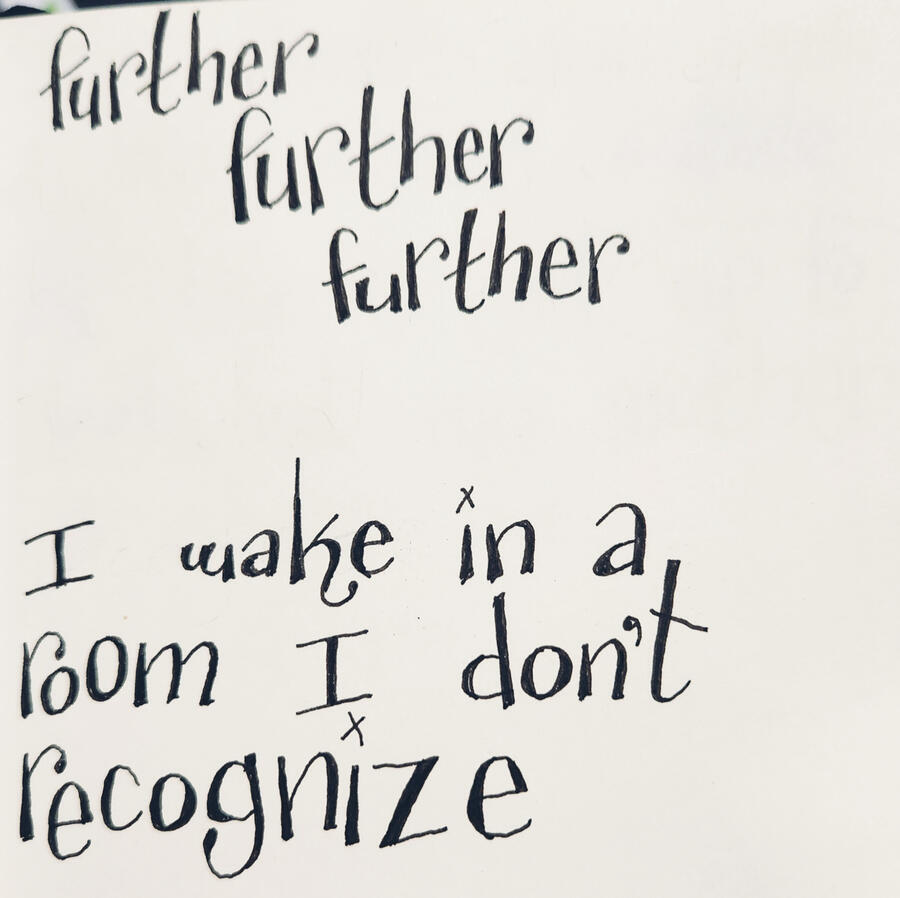 further
further
further
I wake in a
room I don't
recognize